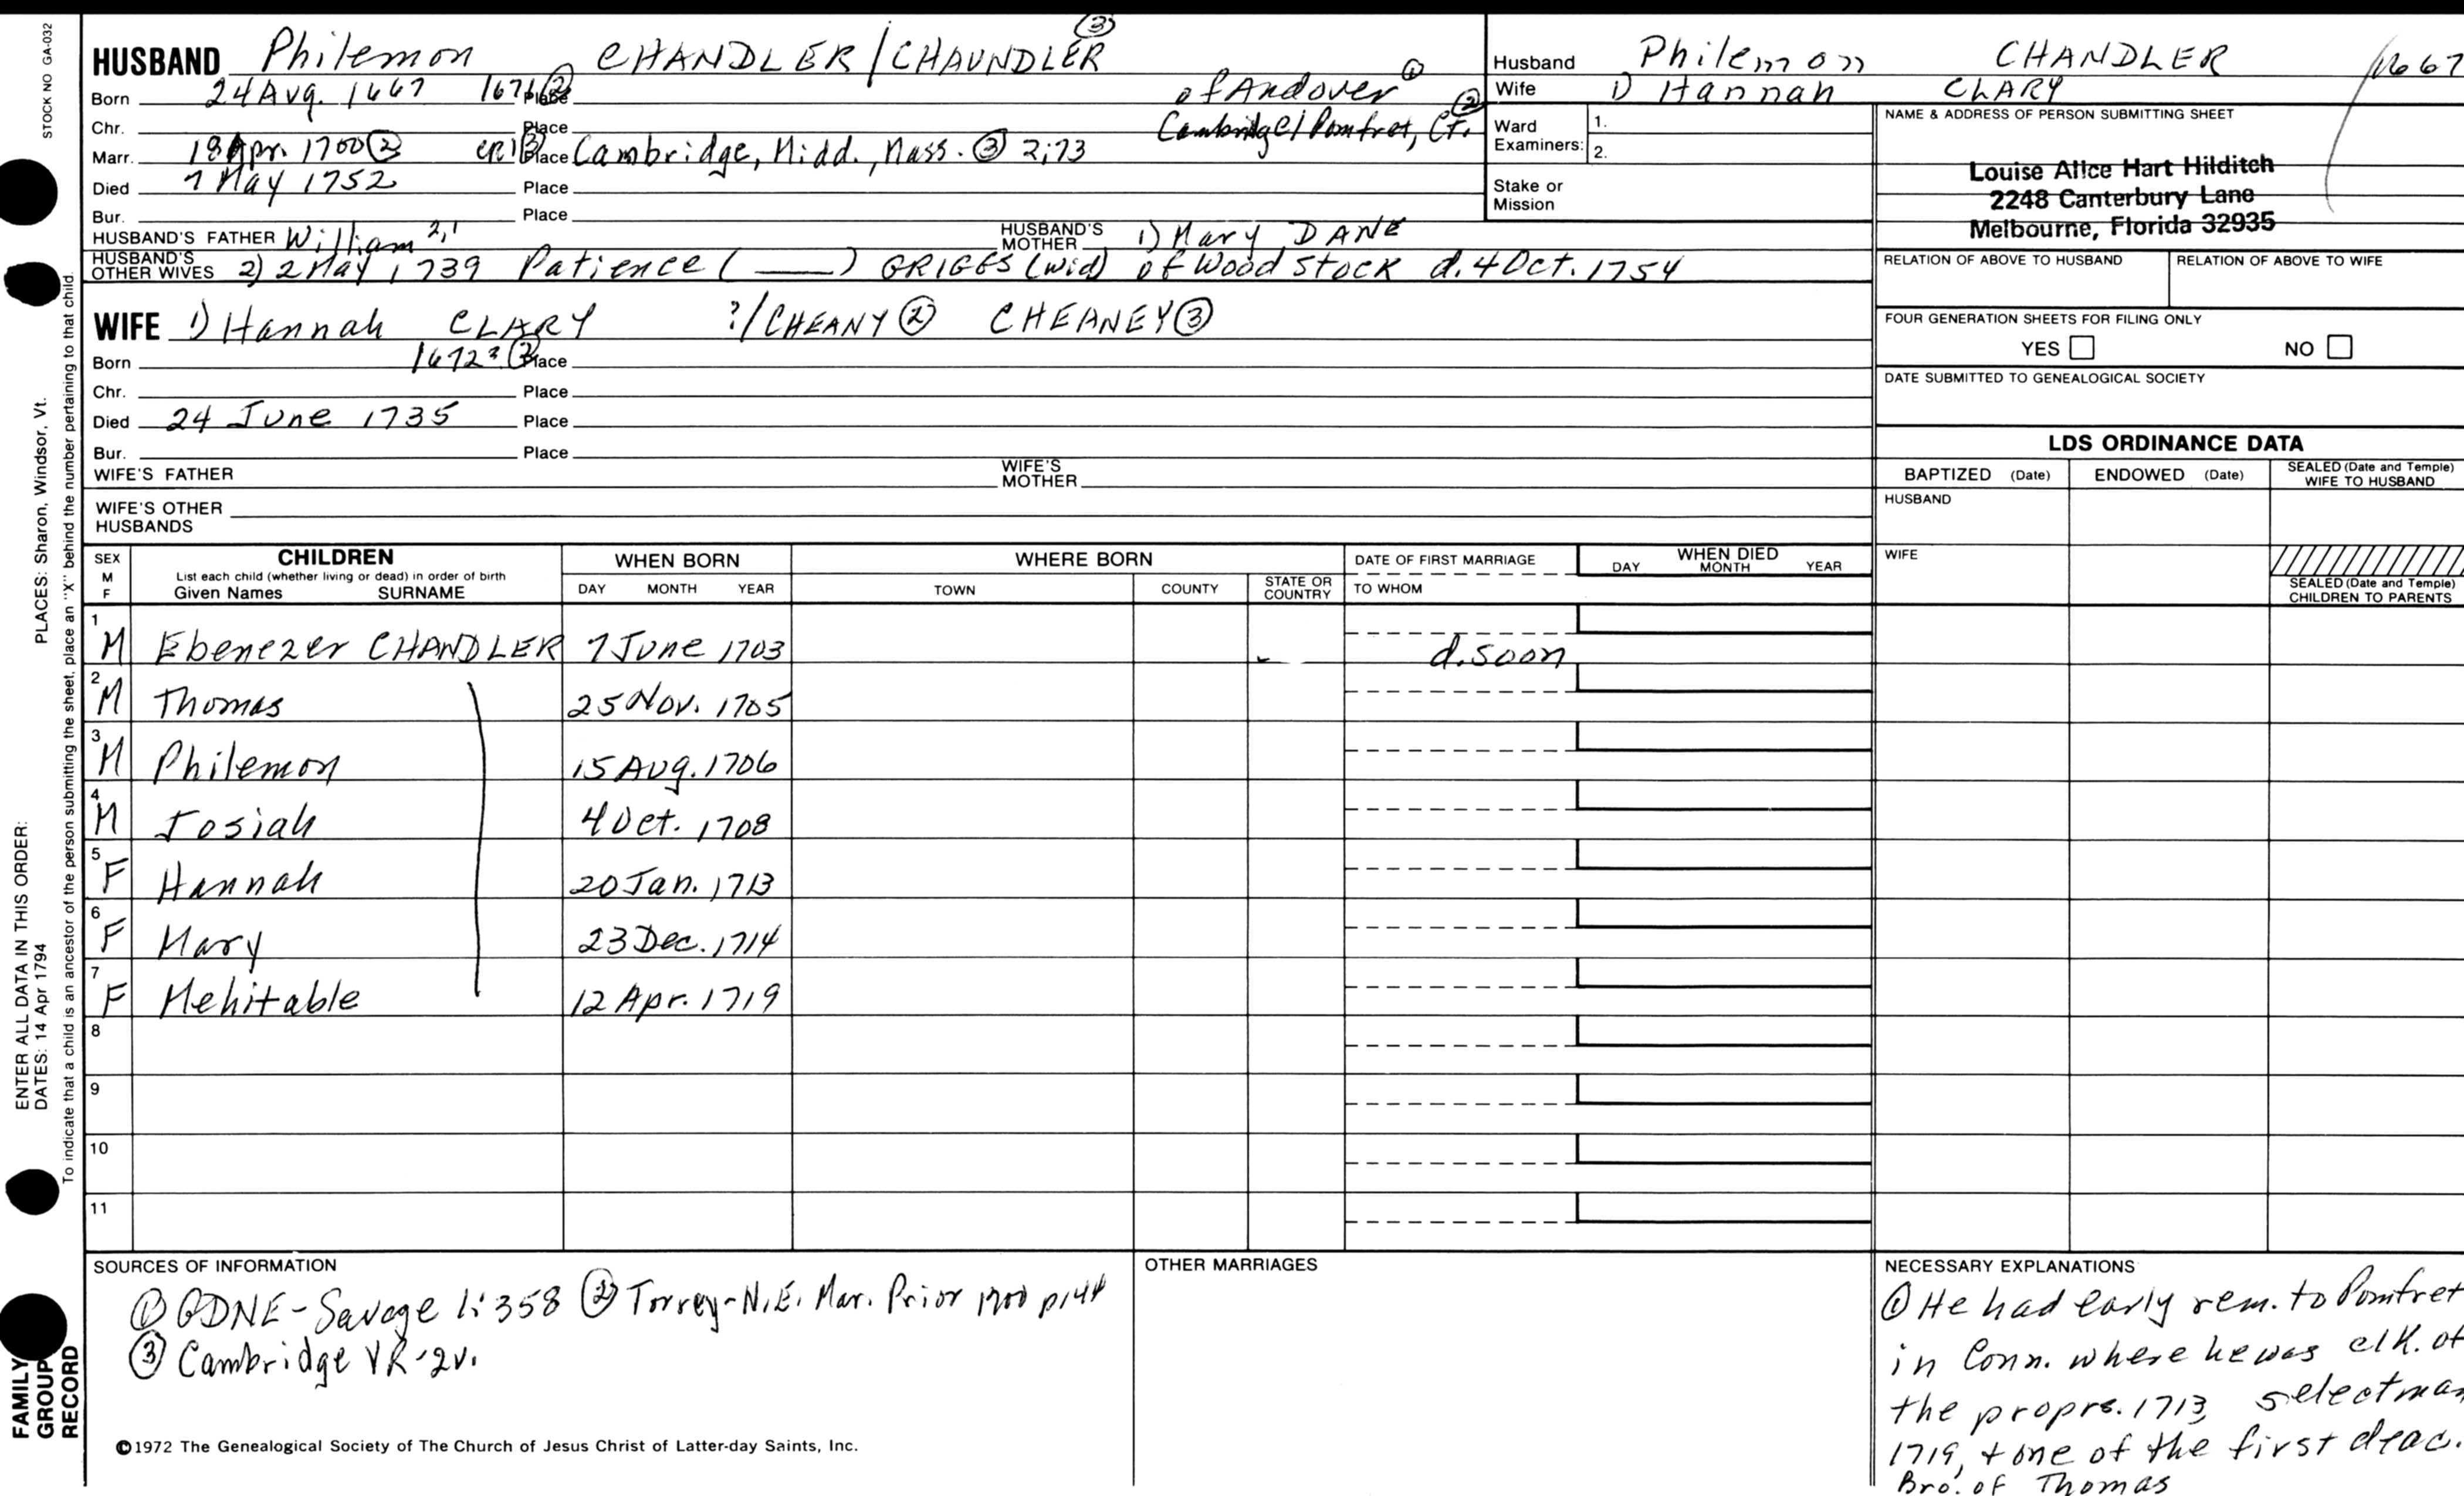 STOCK NO GA-032
HUSBAND Philemon CHANDLER/CHAUNDLER ③
Born 24 Aug. 1667 1671 ② Place of Andover ①
Chr. Place Cambridge/Pomfret, CT. ②
Marr. 18 Apr. 1700 ② Place Cambridge, Midd., Mass. ③ 2:73
Died 7 May 1752 Place
Bur. Place
HUSBAND'S FATHER William 2,1 HUSBAND'S MOTHER 1) Mary DANE
HUSBAND'S OTHER WIVES 2) 2 May 1739 Patience ( ___ ) GRIGGS (wid) of Woodstock d. 4 Oct. 1754
WIFE 1) Hannah CLARY ?/CHEANY ② CHEANEY ③
Born 1672? ② Place
Chr. Place
Died 24 June 1735 Place
Bur. Place
WIFE'S FATHER WIFE'S MOTHER
WIFE'S OTHER HUSBANDS
Husband Philemon CHANDLER 1667
Wife 1) Hannah CLARY
Ward Examiners: 1.
2.
Stake or Mission
NAME & ADDRESS OF PERSON SUBMITTING SHEET
Louise Alice Hart Hilditch
2248 Canterbury Lane
Melbourne, Florida 32935
RELATION OF ABOVE TO HUSBAND RELATION OF ABOVE TO WIFE
FOUR GENERATION SHEETS FOR FILING ONLY
YES NO
DATE SUBMITTED TO GENEALOGICAL SOCIETY
LDS ORDINANCE DATA
BAPTIZED (Date) ENDOWED (Date) SEALED (Date and Temple) WIFE TO HUSBAND
HUSBAND
WIFE
SEALED (Date and Temple) CHILDREN TO PARENTS
SEX M F CHILDREN WHEN BORN WHERE BORN DATE OF FIRST MARRIAGE WHEN DIED
List each child (whether living or dead) in order of birth
Given Names SURNAME DAY MONTH YEAR TOWN COUNTY STATE OR COUNTRY TO WHOM DAY MONTH YEAR
1 M Ebenezer CHANDLER 7 June 1703 d. soon
2 M Thomas 25 Nov. 1705
3 M Philemon 15 Aug. 1706
4 M Josiah 4 Oct. 1708
5 F Hannah 20 Jan. 1713
6 F Mary 23 Dec. 1714
7 F Mehitable 12 Apr. 1719
8
9
10
11
SOURCES OF INFORMATION
① GDNE-Savage 1:358 ② Torrey-N.E. Mar. Prior 1700 p144
③ Cambridge VR-2v.
©1972 The Genealogical Society of The Church of Jesus Christ of Latter-day Saints, Inc.
OTHER MARRIAGES
NECESSARY EXPLANATIONS
① He had early rem. to Pomfret
in Conn. where he was clk. of
the proprs. 1713, selectman
1719, + one of the first deac.
Bro. of Thomas
PLACES: Sharon, Windsor, Vt.
ENTER ALL DATA IN THIS ORDER:
DATES: 14 Apr 1794
To indicate that a child is an ancestor of the person submitting the sheet, place an "X" behind the number pertaining to that child.
FAMILY
GROUP
RECORD